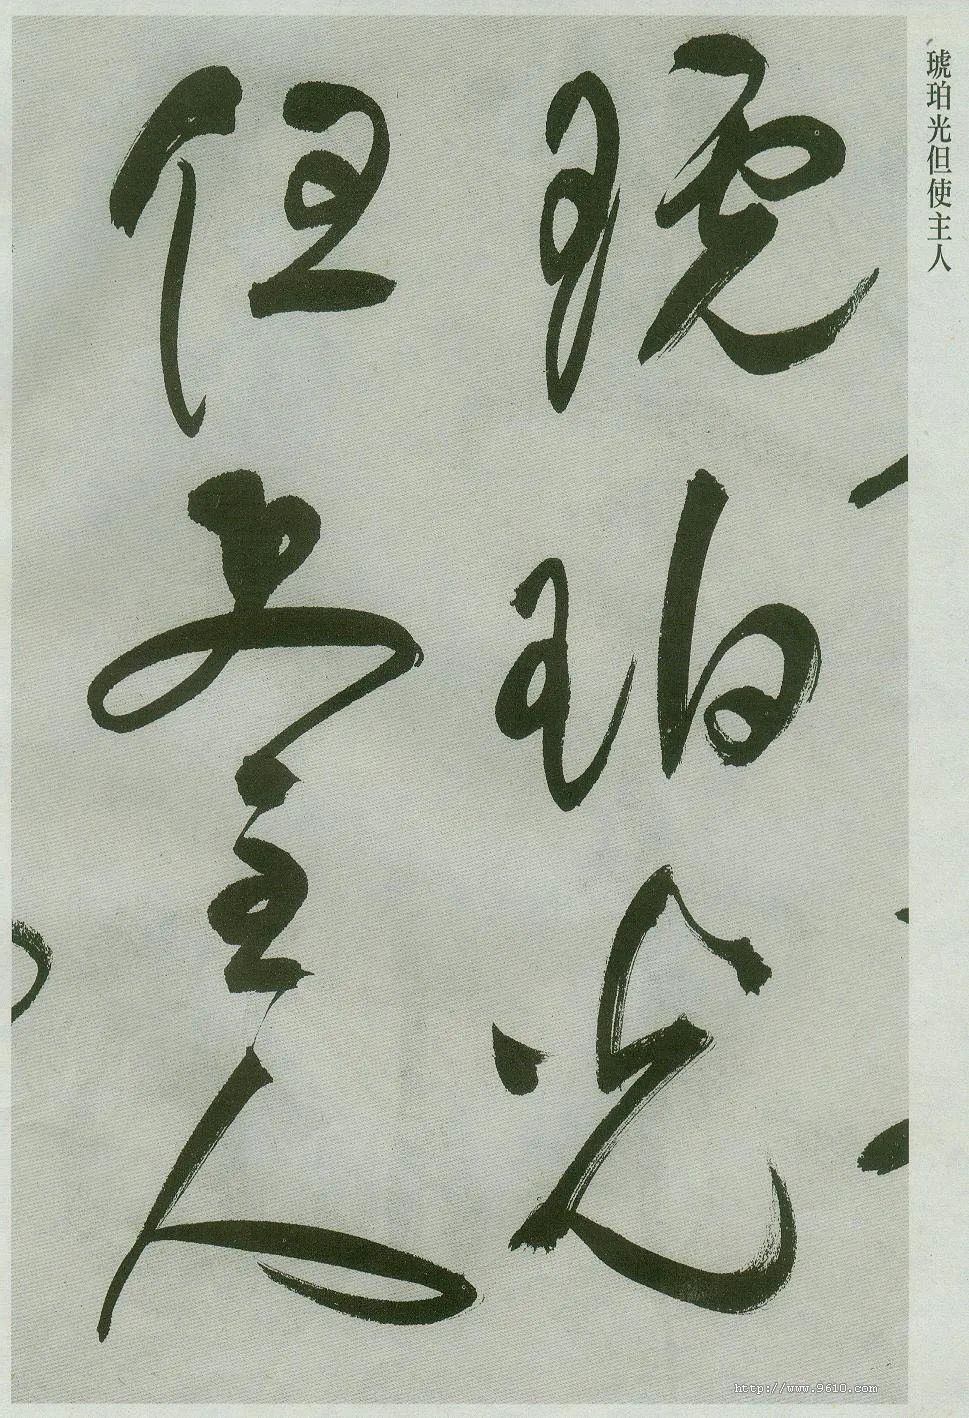 琥珀光但使主人
琥珀光
但使主人
http://www.9610.com